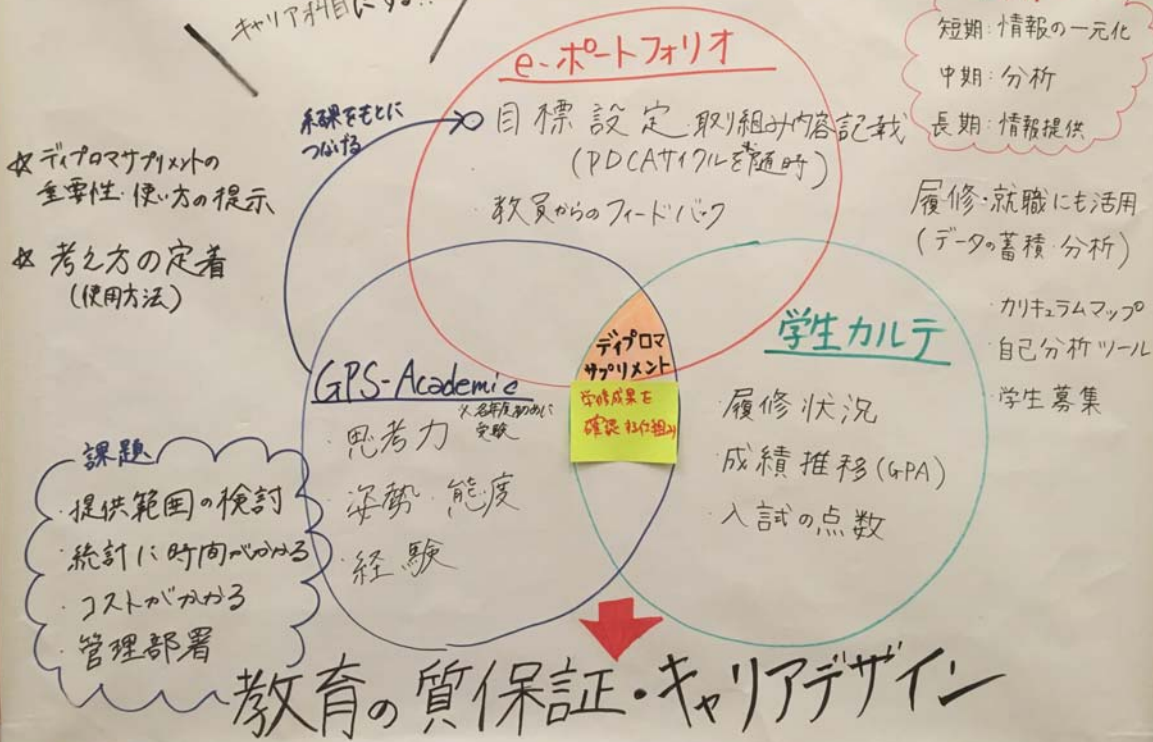 キャリア科目にする!!
短期:情報の一元化
中期:分析
長期:情報提供
e-ポートフォリオ
結果をもとに
つなげる
目標設定・取り組み内容記載
(PDCAサイクルを随時)
・教員からのフィードバック
☆ディプロマサプリメントの
重要性・使い方の提示
☆考え方の定着
(使用方法)
履修・就職にも活用
(データの蓄積・分析)
・カリキュラムマップ
・自己分析ツール
・学生募集
ディプロマ
サプリメント
学修成果を
確認する仕組み
学生カルテ
・履修状況
・成績推移(GPA)
・入試の点数
GPS-Academic
※各年度初めに
受験
・思考力
・姿勢・態度
・経験
課題
・提供範囲の検討
・統計に時間がかかる
・コストがかかる
・管理部署
教育の質保証・キャリアデザイン